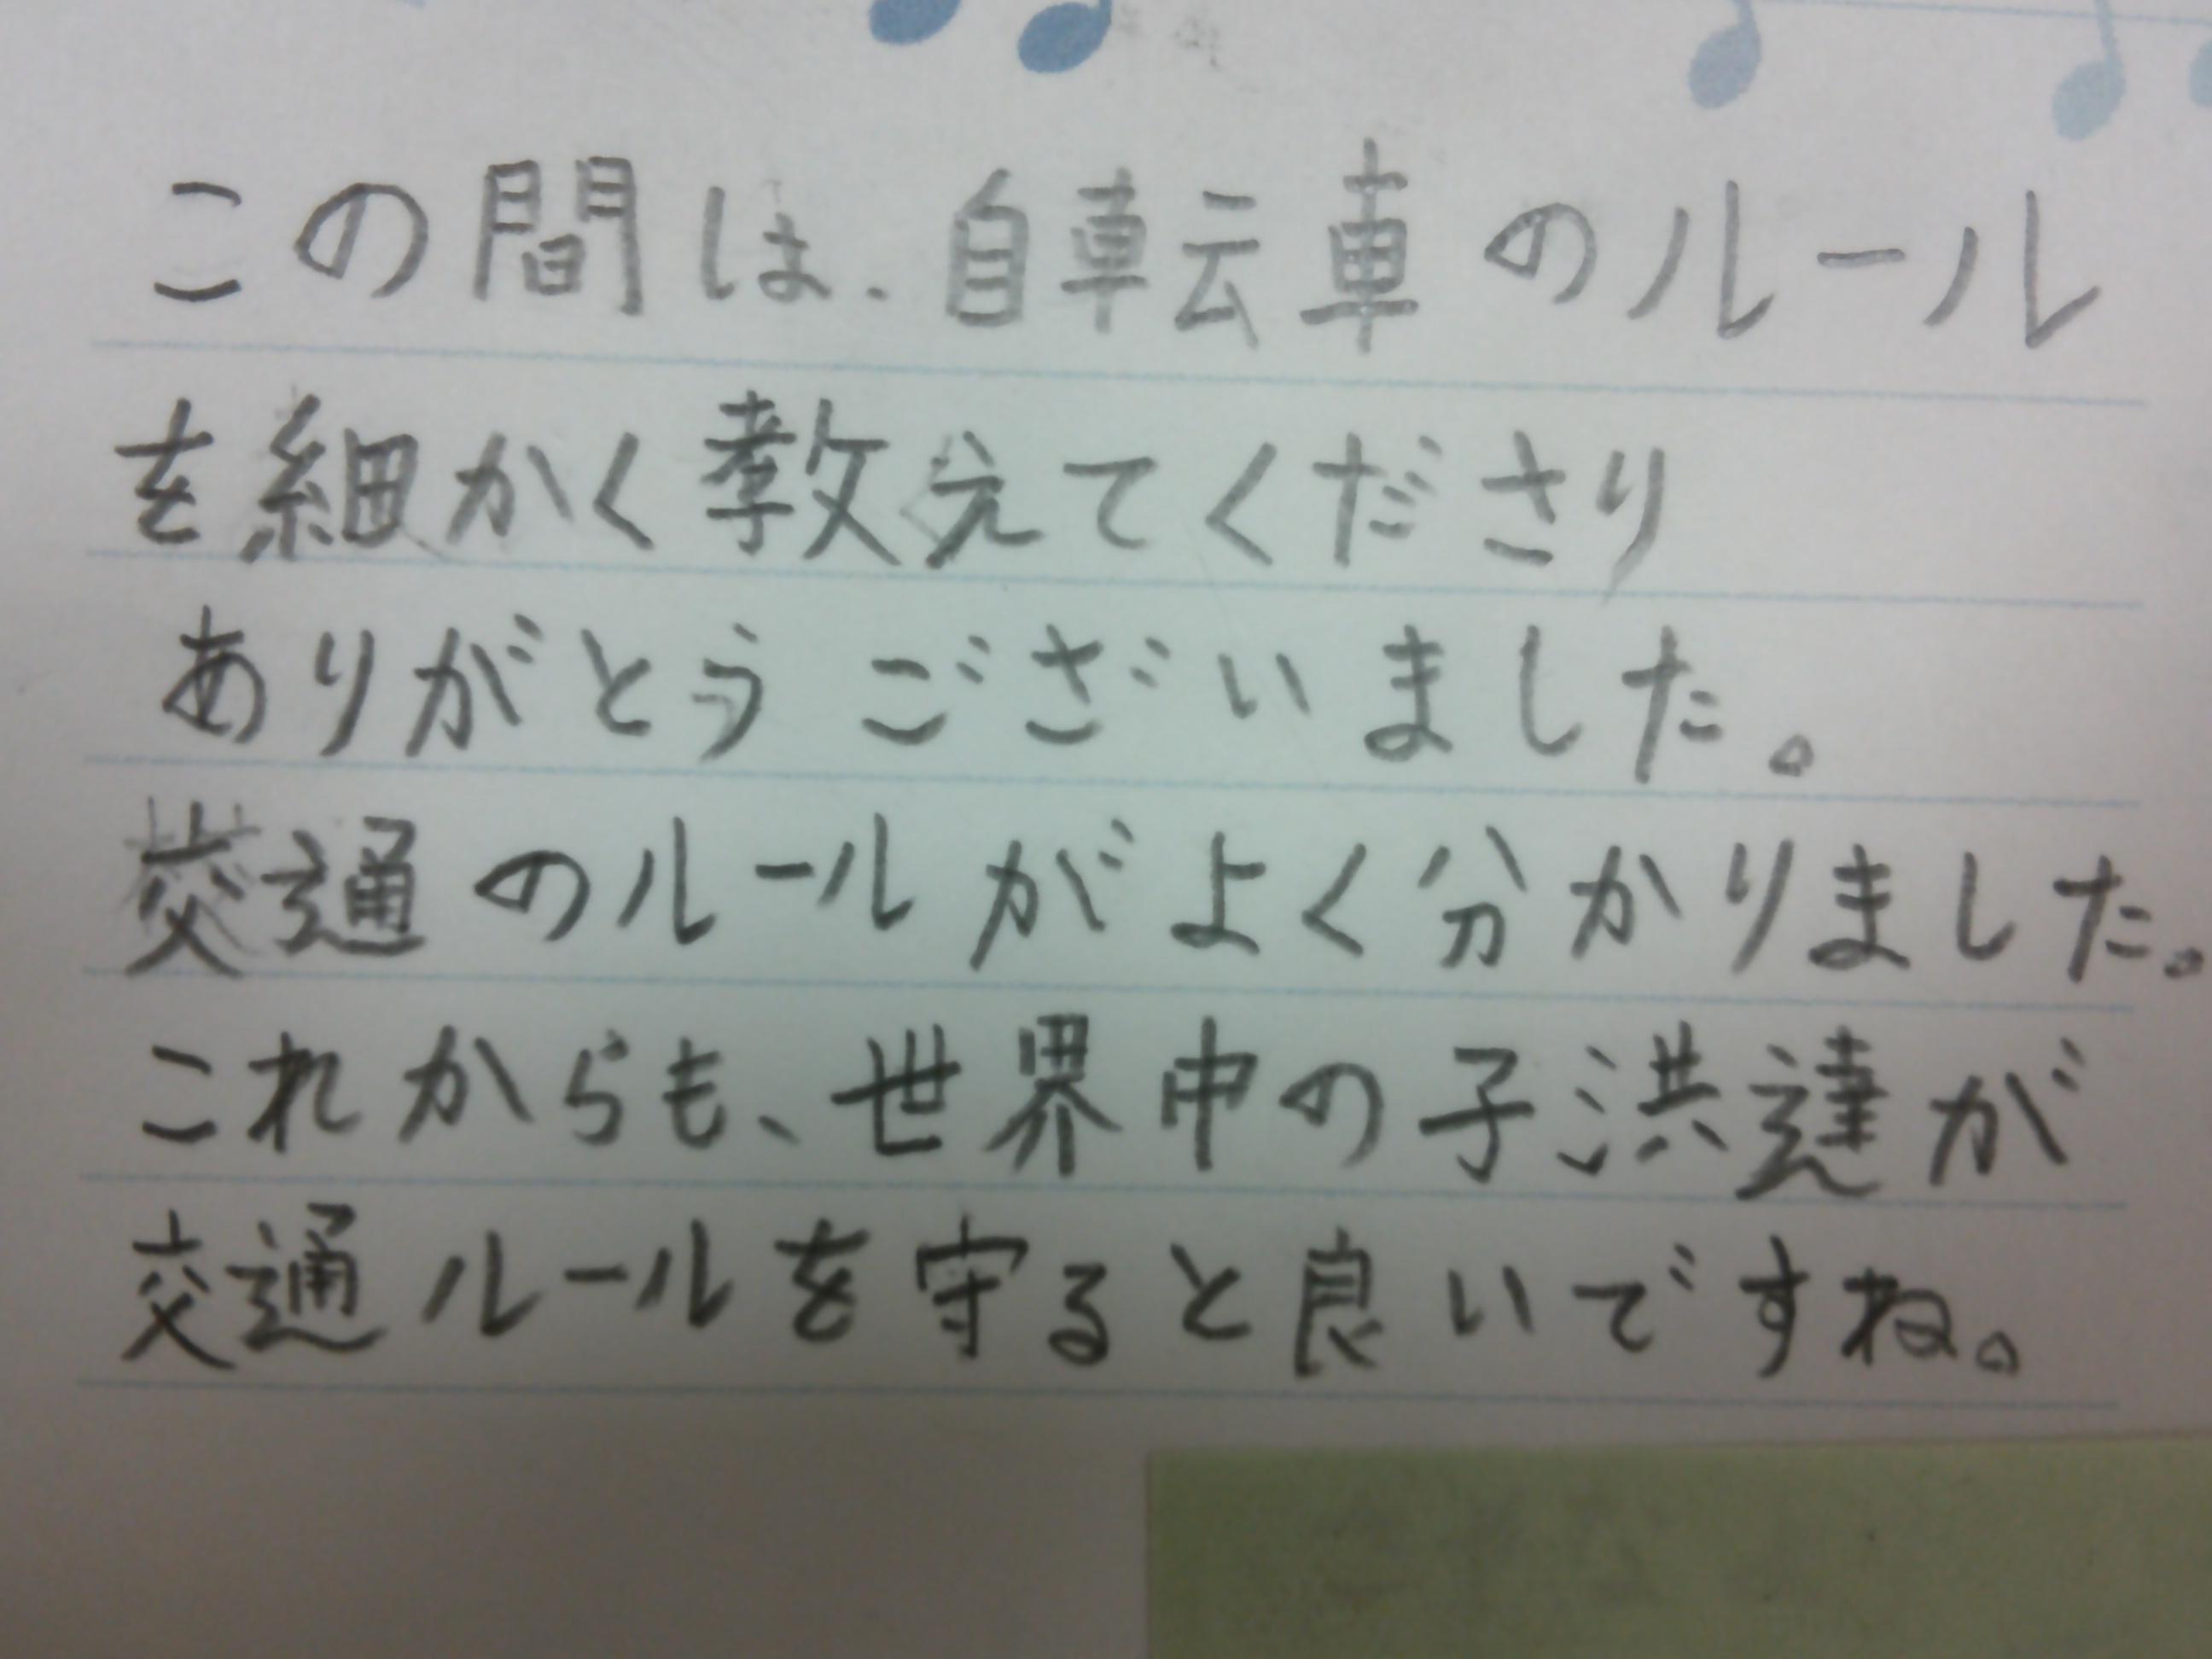 この間は、自転車のルール
を細かく教えてくださり
ありがとうございました。
交通のルールがよく分かりました。
これからも、世界中の子洪達が
交通ルールを守ると良いですね。